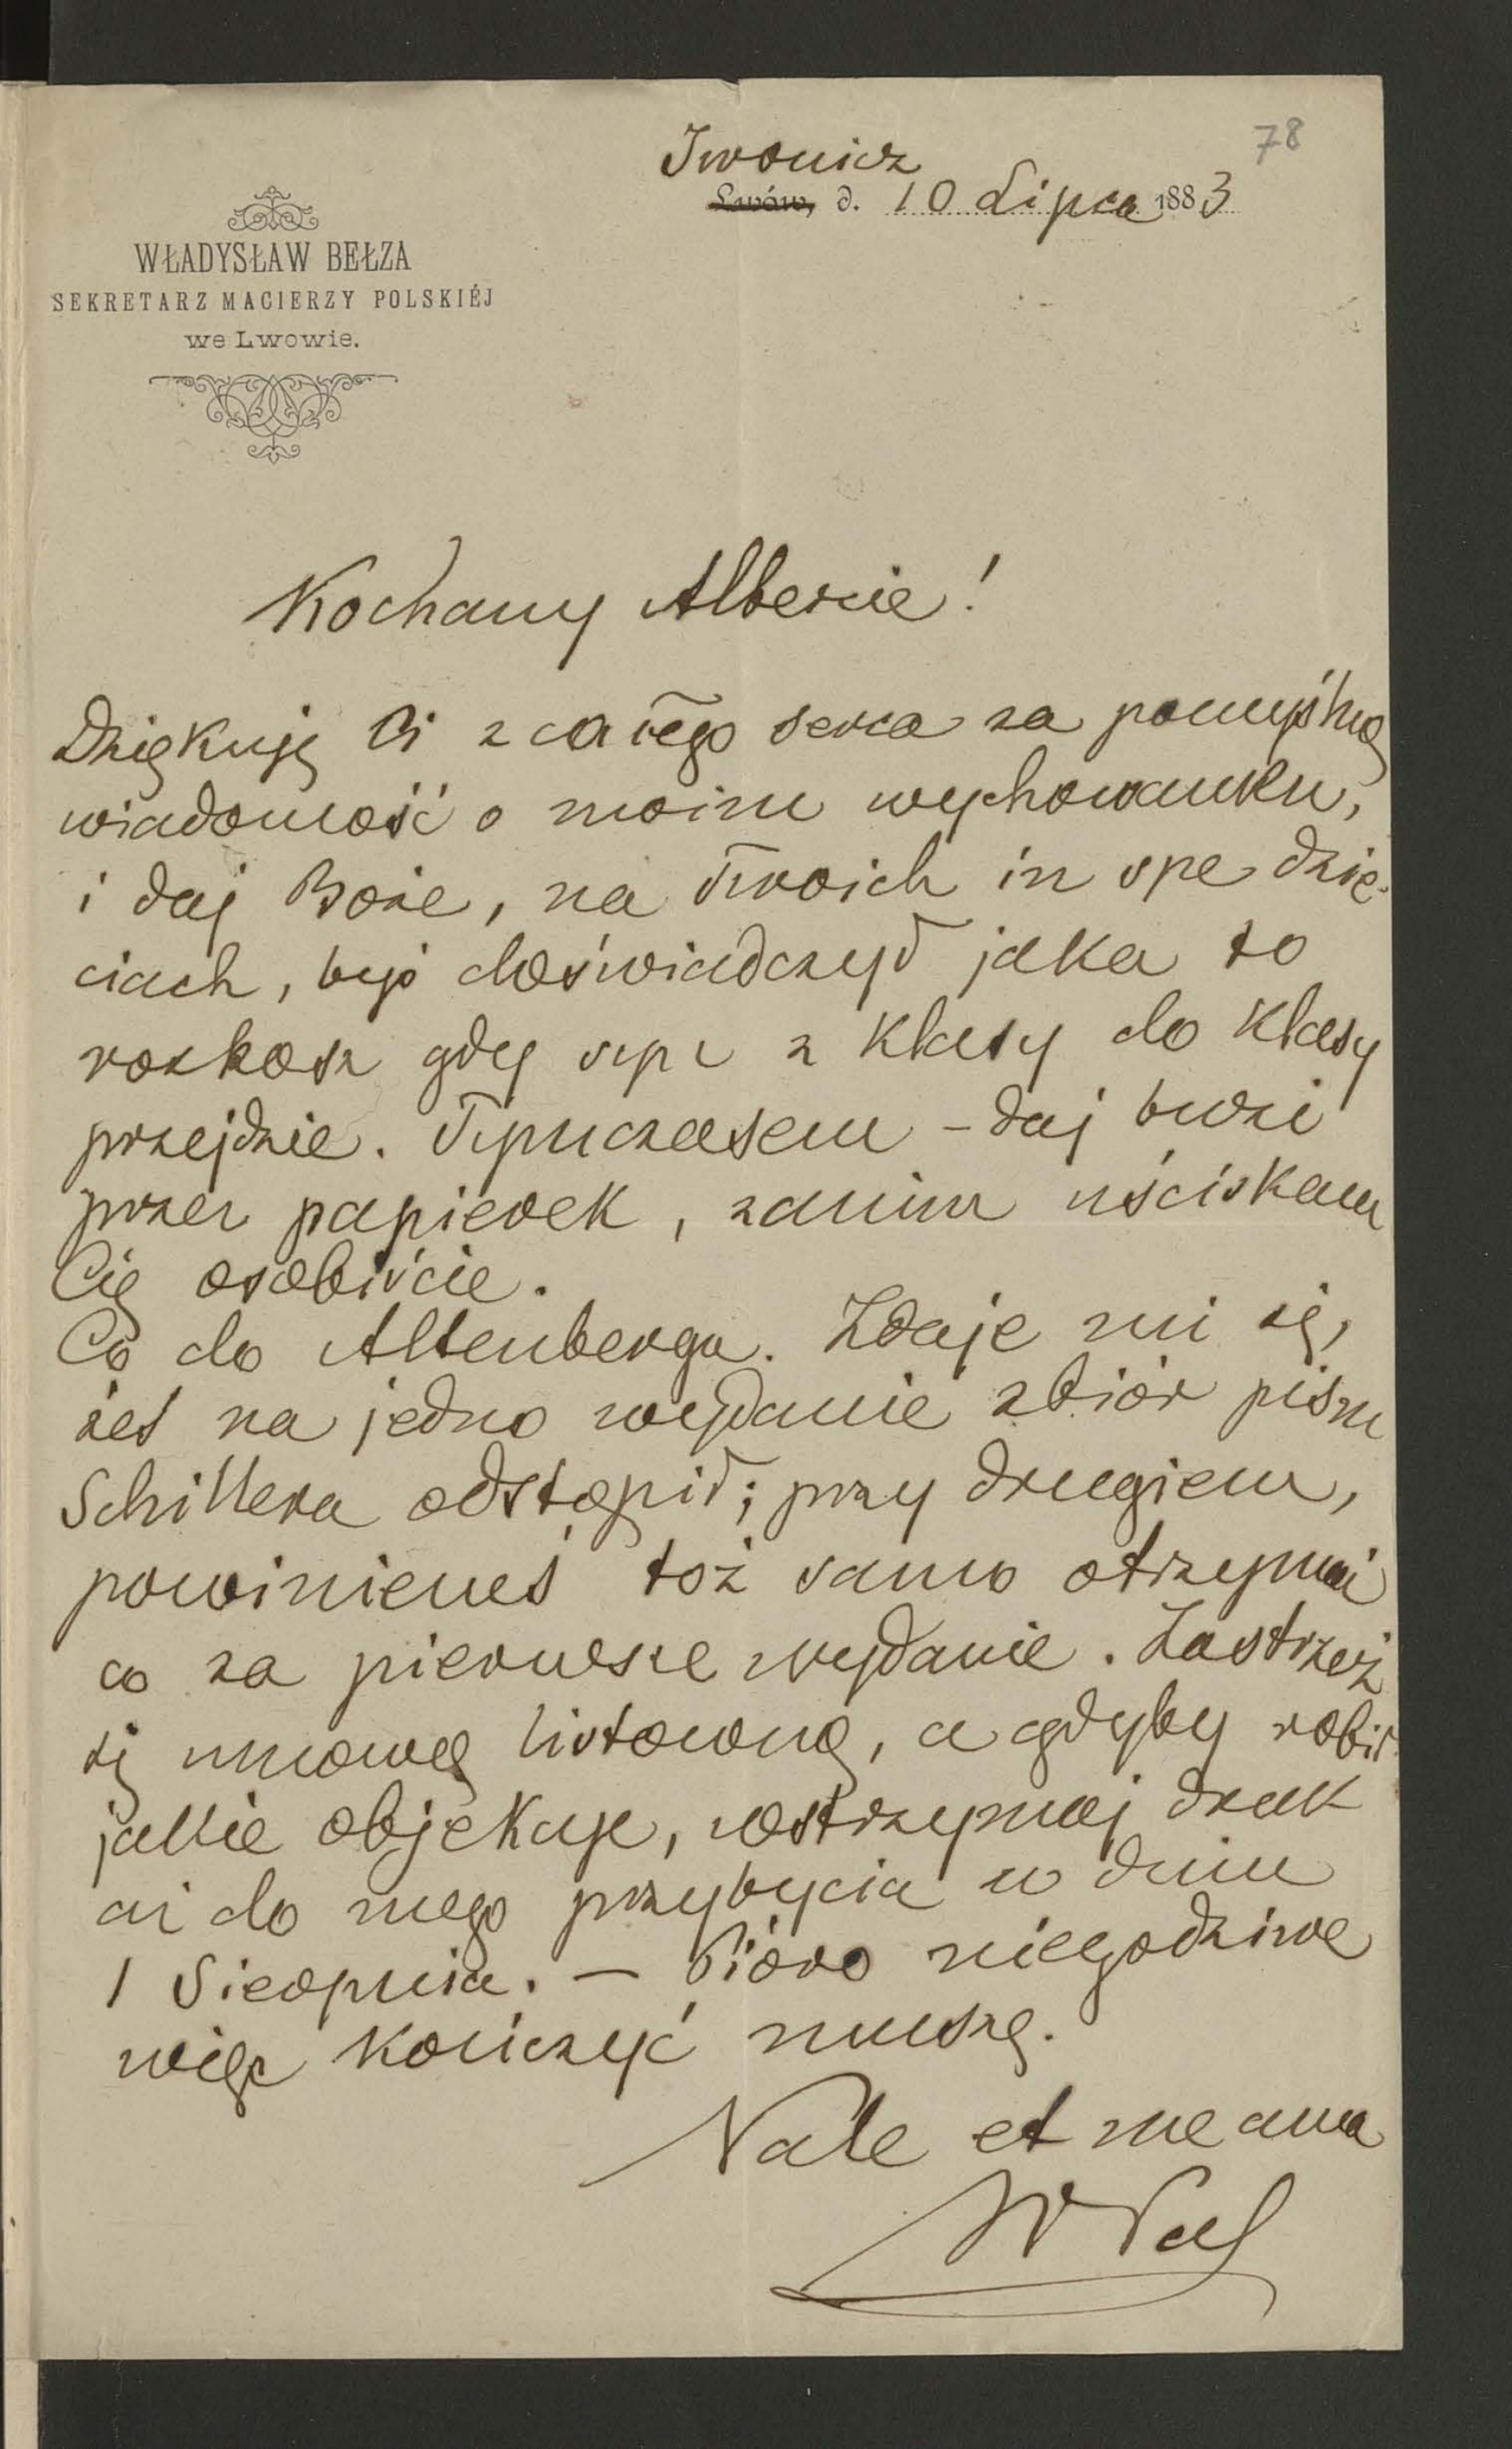 78
Iwonicz
Lwów, d. 10 Lipca 1883
WŁADYSŁAW BEŁZA
SEKRETARZ MACIERZY POLSKIÉJ
we Lwowie.
Kochany Albercie!
Dziękuję Ci z całego serca za pomyślną
wiadomość o moim wychowanku,
i daj Boże, na Twoich in spe dzie-
ciach, byś doświadczył jaka to
rozkosz gdy syn z klasy do klasy
przejdzie. Tymczasem – daj buzi
przez papierek, zanim uściskam
Cię osobiście.
Co do Altenberga. Zdaje mi się,
żeś na jedno wydanie zbiór pism
Schillera odstąpił; przy drugiem,
powinieneś toż samo otrzymać
co za pierwsze wydanie. Zastrzeż
się umową listowną, a gdyby robił
jakie objekcje, wstrzymaj druk
aż do mego przybycia w dniu
1 Sierpnia. — Pióro niegodziwe
więc kończyć muszę.
Vale et me ama